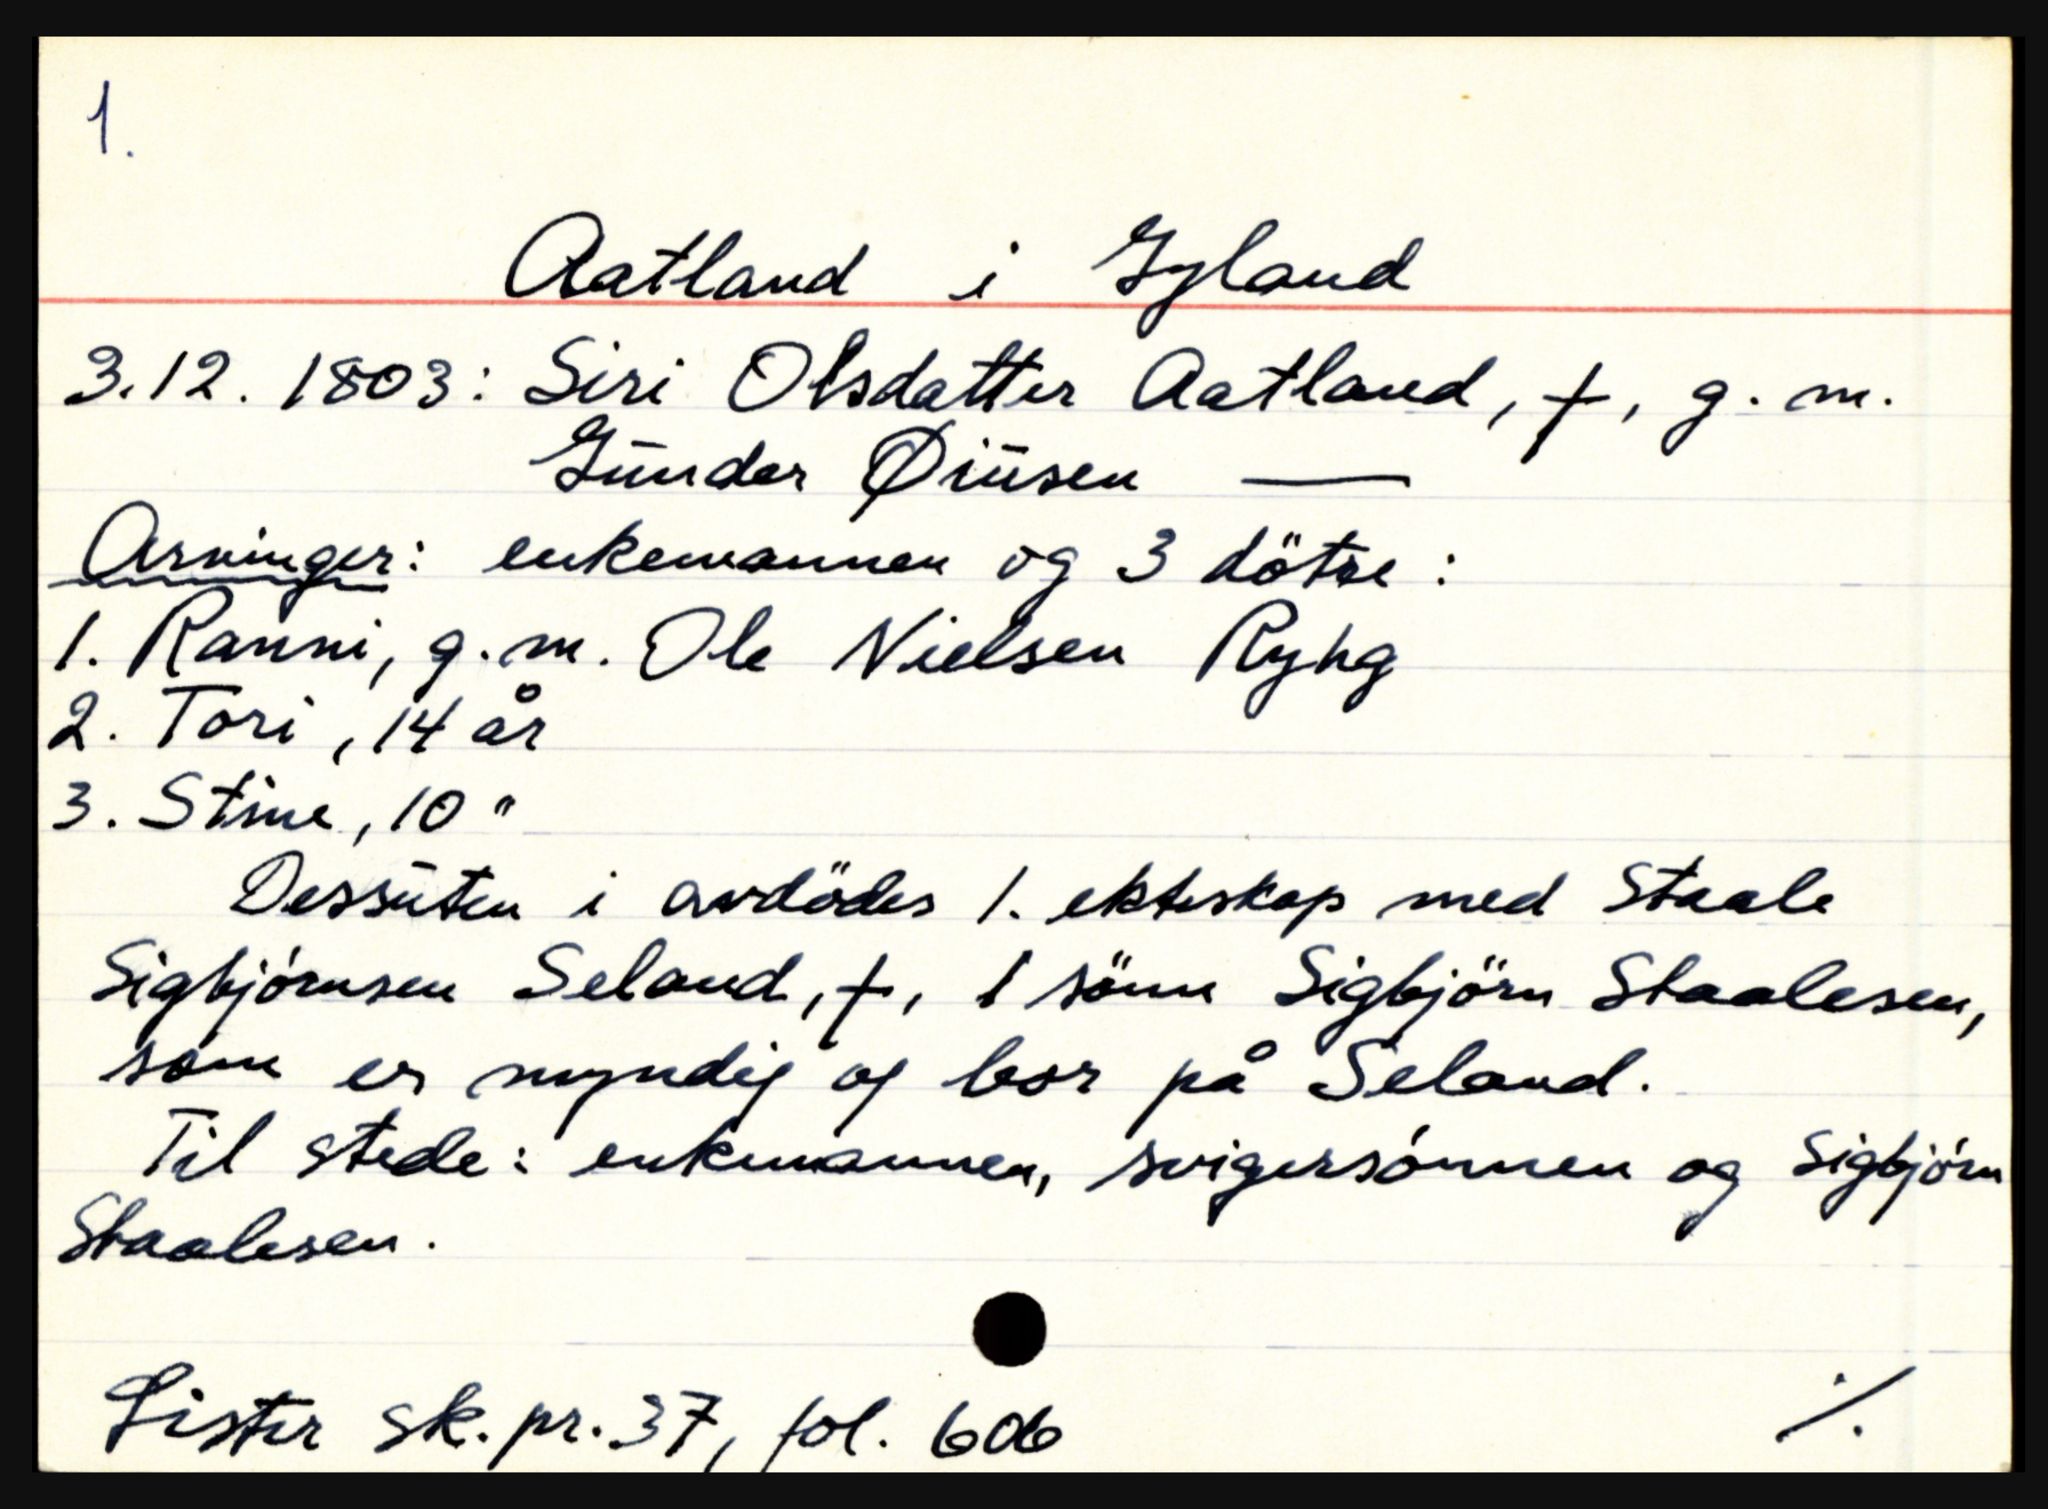 1.
Aatland i Gyland
3.12. 1803: Siri Olsdatter Aatland, †, g. m.
Gunder Øiusen —
Arvinger: enkemannen og 3 dötre:
1. Ranni, g. m. Ole Nielsen Ryhg
2. Tori, 14 år
3. Stine, 10 "
Dessuten i avdödes 1. ekteskap med Staale
Sigbjörnsen Seland, †, 1 sönn Sigbjörn Staalesen,
som er myndig og bor på Seland.
Til stede: enkemannen, svigersönnen og Sigbjörn
Staalesen.
Lister sk. pr. 37, fol. 606 ./.